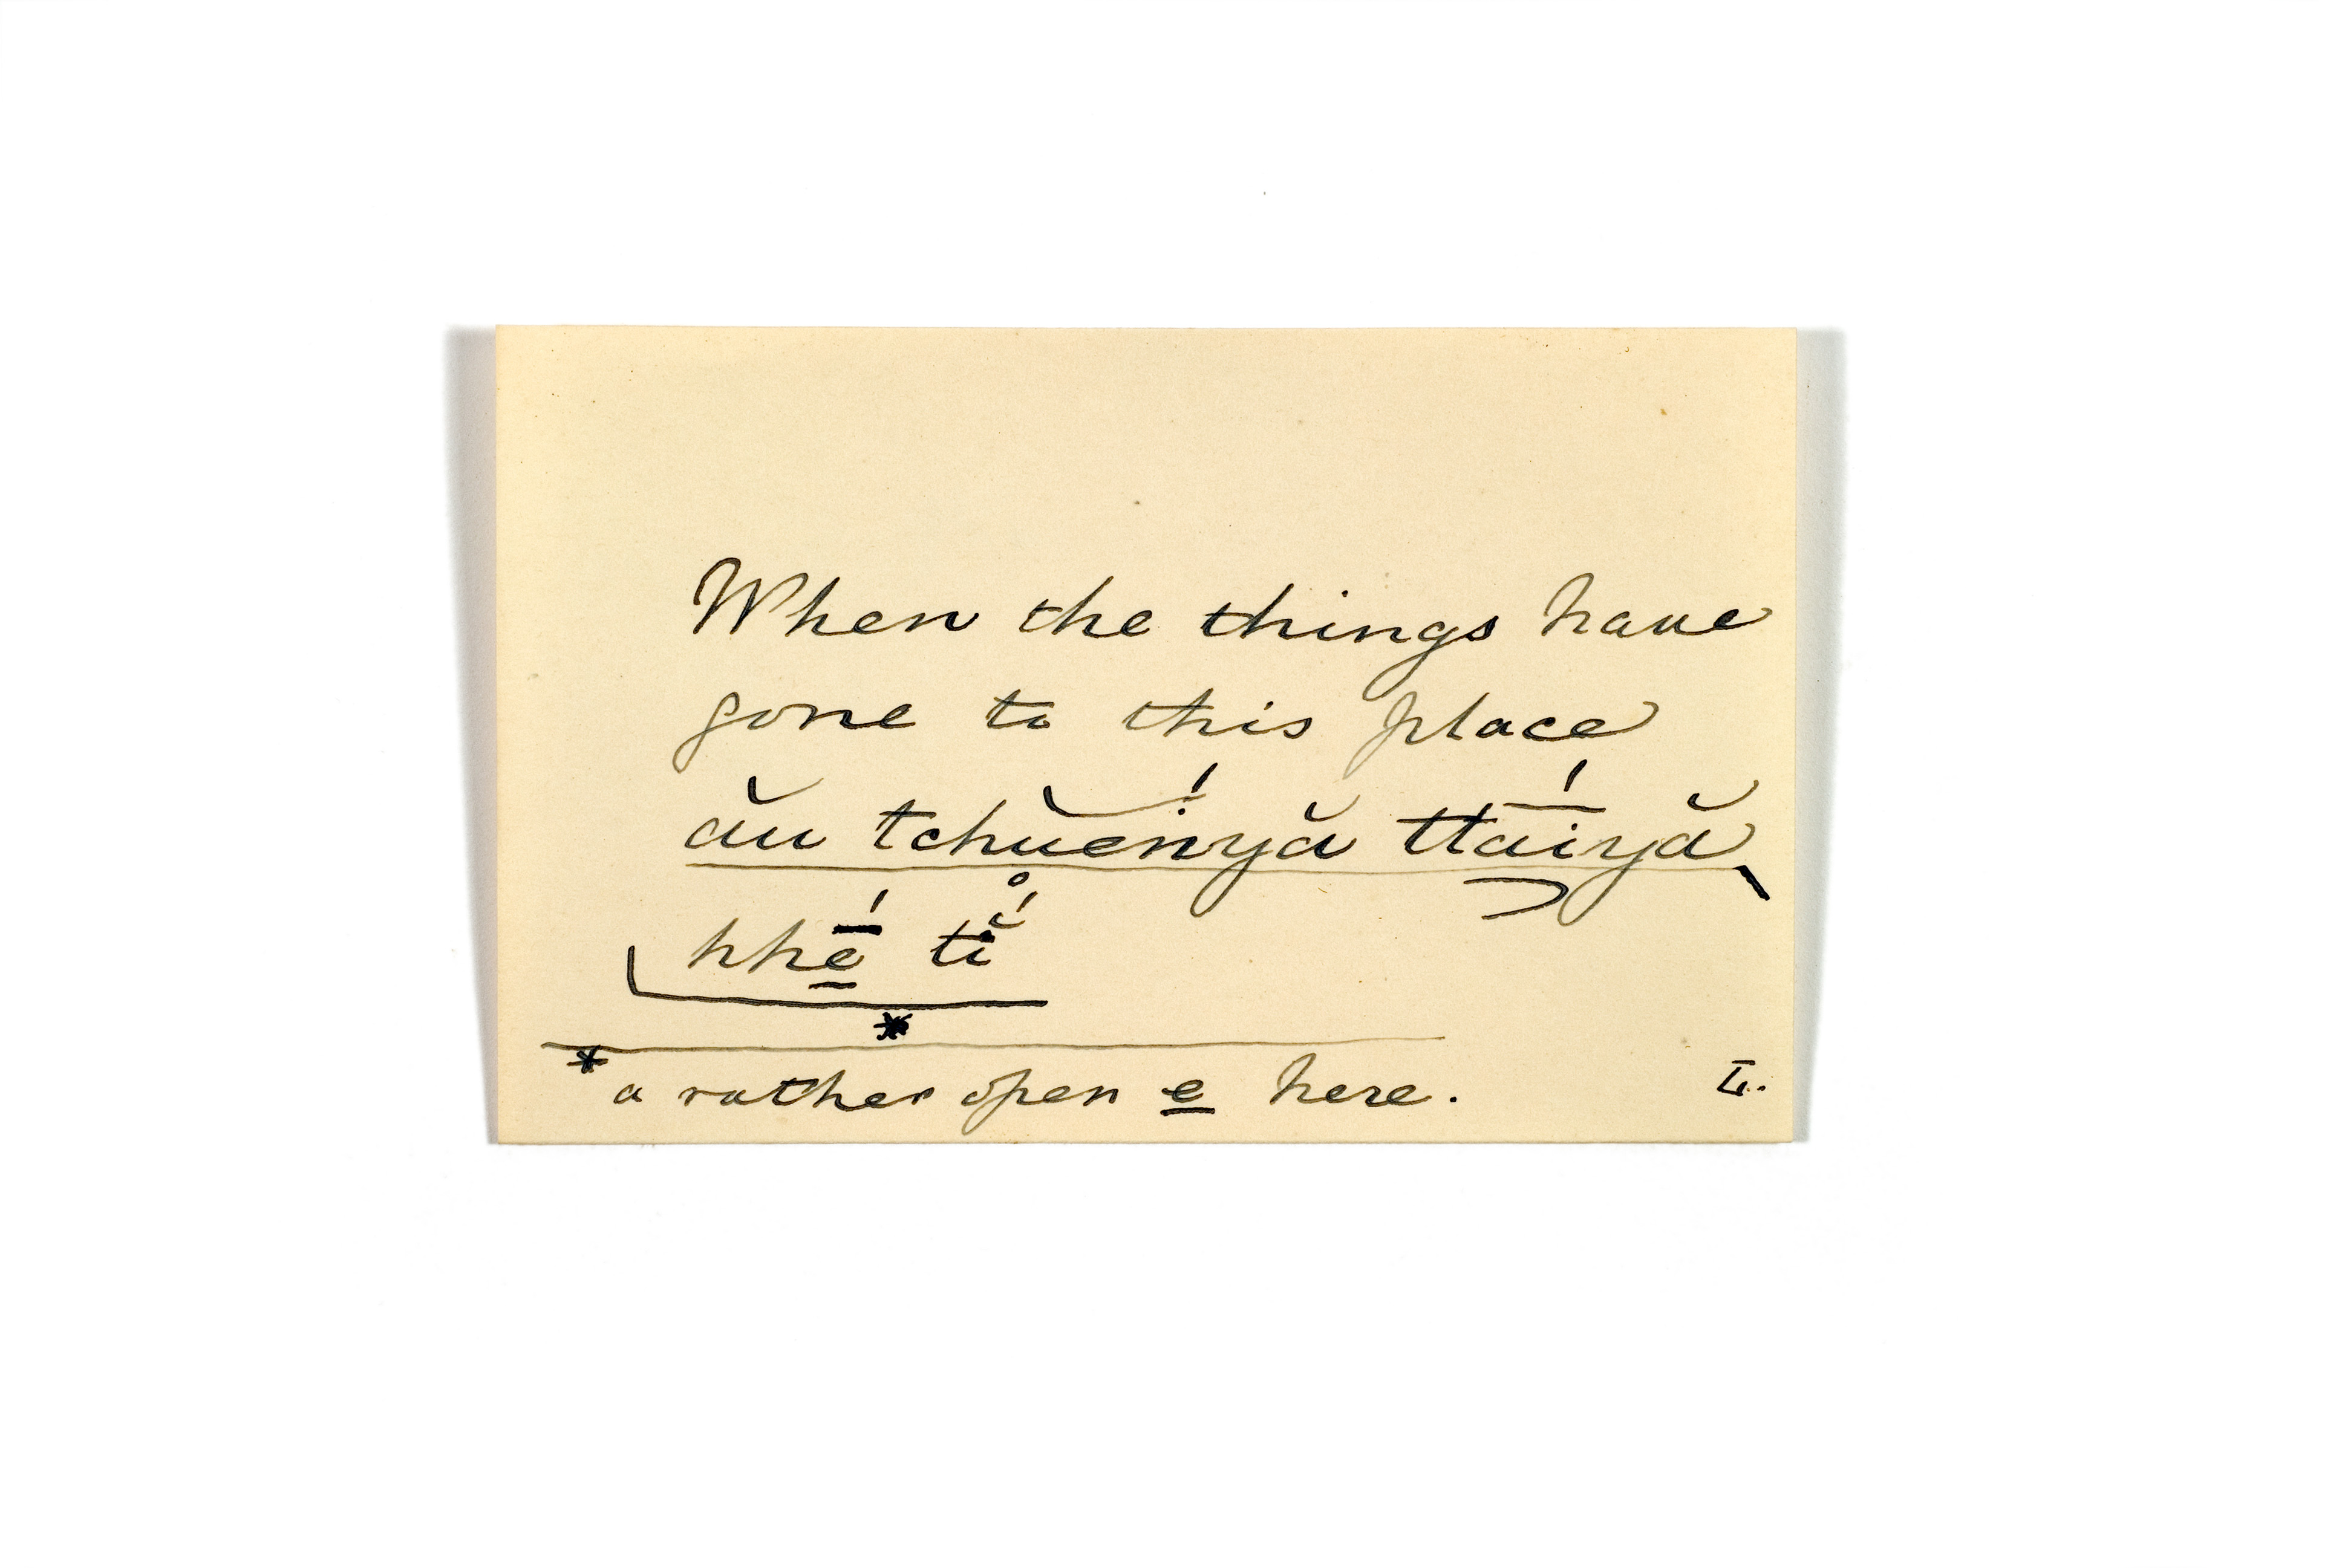 When the things have
gone to this place
ău tchŭĕinyă ttāíyă
hhé̱̄ tĭ̊́
*
* a rather open e here.
L.